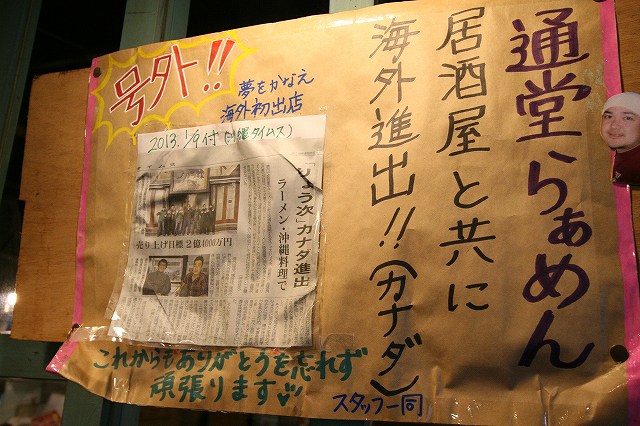 通堂らぁめん
居酒屋と共に
海外進出!!(カナダ)
号外!!
夢をかなえ
海外初出店
2013.1/9付(沖縄タイムス)
「じょう次」カナダ進出
ラーメン・沖縄料理で
売り上げ目標2億4000万円
これからもありがとうを忘れず
頑張ります
スタッフ一同